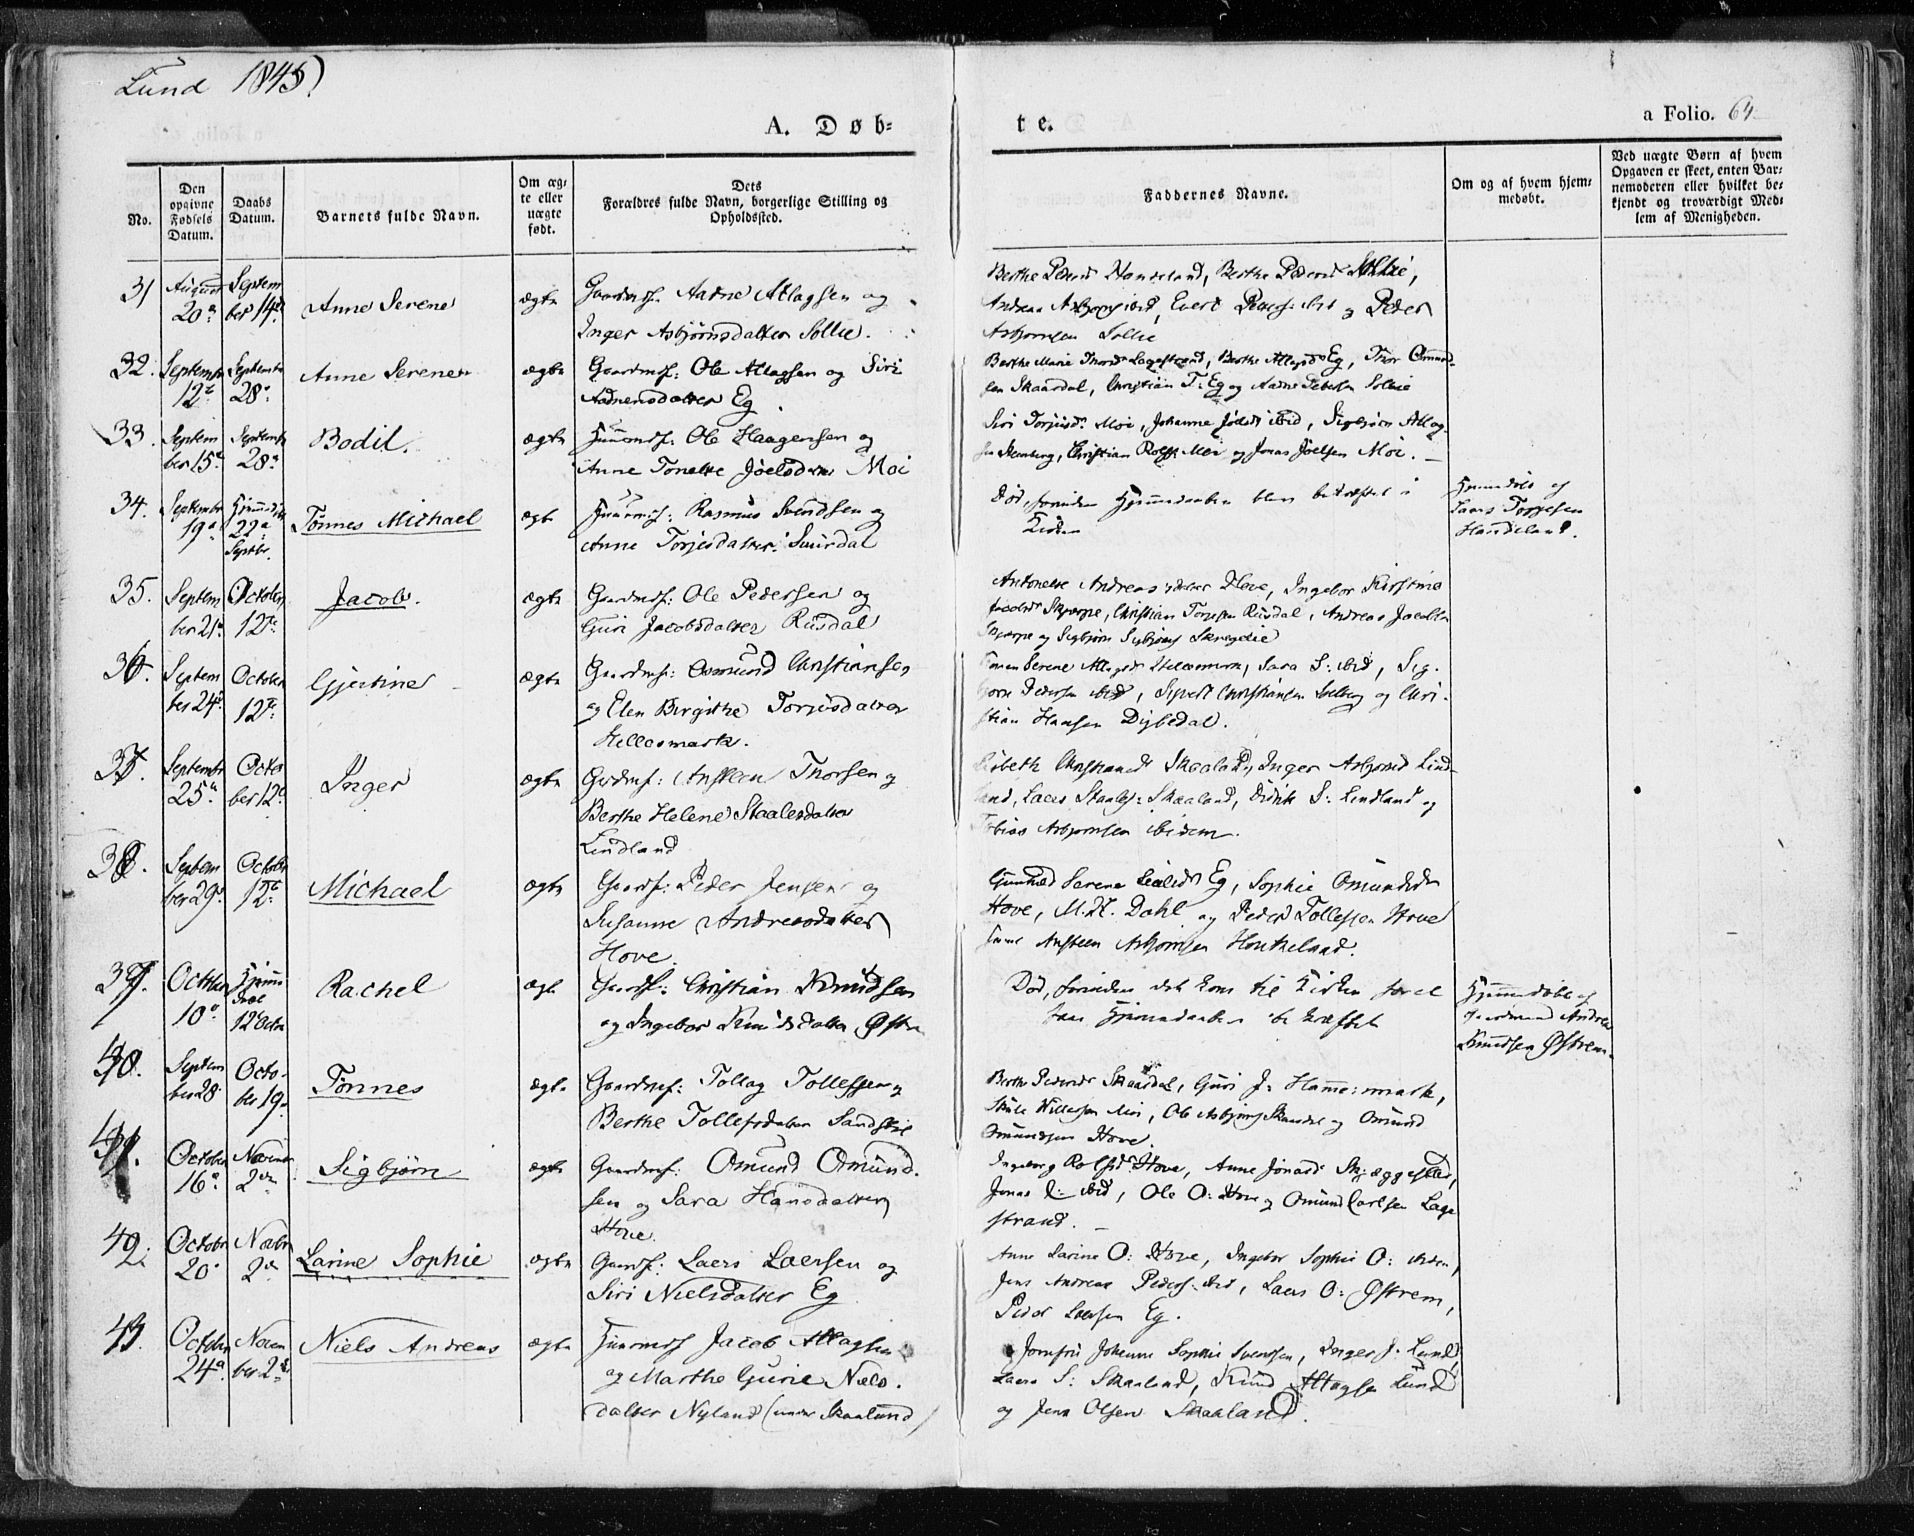 Lund 1845)
A. Døb-
te.
a Folio. 64
No.
Den opgivne Fødsels Datum.
Daabs Datum.
Barnets fulde Navn.
Om ægte eller uægte født.
Dets Forældres fulde Navn, borgerlige Stilling og Opholdssted.
Faddernes Navne.
Om og af hvem hjemmedøbt.
Ved uægte Børn af hvem Opgaven er skeet, enten Barnemoderen eller hvilket bekjendt og troværdigt Medlem af Menigheden.
31 August 20de September 14de Anne Serene ægte Gaardmd. Aadne Atlagsen og
Inger Asbjørnsdatter Sollie.
Berthe Pedersd Handeland, Berthe Pedersd Sollie,
ibid, Evert ibid og Peder
Asbjørnsen Sollie
32. September 12te September 28de Anne Serene ægte Gaardmd: Ole Atlagsen og Siri
Aadnensdatter Eg.
Berthe Marie Lagestrand, Berthe Atlagsd Eg, Thor Omund-
sen Skaardal, Christian T: Eg og Aadne Sollie
33. September 15de September 28de Bodil. ægte Huusmd: Ole Haagensen og
Anne Tonette Joelsdatter Moi
Siri Torjusd. Moi, Johanne Joelsd ibid, Sigbjørn Atlag-
sen, Christian Moi og Jonas Joelsen Moi.
34. September 19de 22de Septbr. Tønnes Michael ægte Huusmd: Rasmus Svendsen og
Anne Torjesdatter Suurdal
Død, forinden Hjemmedaaben blev bekræftet i
Kirken
Hjemmedøbt af
Laers Torjesen
Handeland.
35. September 21de October 12te Jacob. ægte Gaardmd: Ole Pedersen og
Guri Jacobsdatter Rusdal
Antonette Andreasdatter Hove, Ingebor Kirstine
Christian Torjesen Rusdal, Andreas Jacobsen
og Sigbjørn
36. September 24de October 12te Gjertine ægte Gaardmd: Osmund Christiansen
og Elen Birgithe Torjusdatter
Hellesmark.
Serene Atlagsd Hellesmark, Sara S: ibid, Sig-
bjørn Pedersen ibid, Sivert Christiansen og Chri-
stian Hansen Dybedal.
37. September 25de October 12te Inger ægte Gardmd: Ansteen Thorsen og
Berthe Helene Staalesdatter
Lindland
Lisbeth Christiansd Skaaland, Inger Asbjørnsd Lind-
land, Laers Skaaland, Didrik S: Lindland og
Tobias Asbjørnsen ibidem.
38. September 29de October 12te Michael ægte Gaardf: Peder Jensen og
Susanne Andreasdatter
Hove.
Gunhild Serene Eg, Sophie Omundsd
Hove, M. H. Dahl og Peder Tollefsen Hove
samt Ansteen Asbjørnsen
39. October 10de 12te Octbr Rachel ægte Gaardf: Christian Knudsen
og Ingebor Knudsdatter Østrem
Død, forinden det kom til Kirken for at
faae Hjemmedaaben bekræftet
Hjemmedøbt af
Gaardmand Andreas
Knudsen Østrem.
40. September 28 October 19de Tønnes ægte Gaardmd: Tollag Tollefsen og
Berthe Tollefsdatter
Berthe Pedersd Skaardal, Guri J: Hamremark,
Moi, Ole og Omund
Omundsen Hove.
41. October 16de November 2den Sigbjørn ægte Gaardmd: Omund Omund-
sen og Sara Hansdatter
Hove.
Ingeborg Rolfsd Hove, Anne Jonasd Skjæggestad,
Jonas ibid, Ole O: Hove og Omund Carlsen Lage
strand.
42. October 20de Novbr 2den Larine Sophie ægte Gaardf: Laers Laersen og
Siri Nielsdatter Eg
Anne Larine O: Hove, Ingebor Sophie O: ibidem,
Jens Andreas Peders: ibid, Laers O: Østrem,
Peder Laersen Eg.
43. October 24de November 2den Niels Andreas ægte Huusmd Jacob Atlagsen
og Marthe Gurie Niels-
datter Nyland (under Skaaland)
Jomfru Johanne Sophie Svendsen, Inger J. Lund,
Laers S: Skaaland, Knud Atlagsen Lund
og Jens Olsen Skaaland.